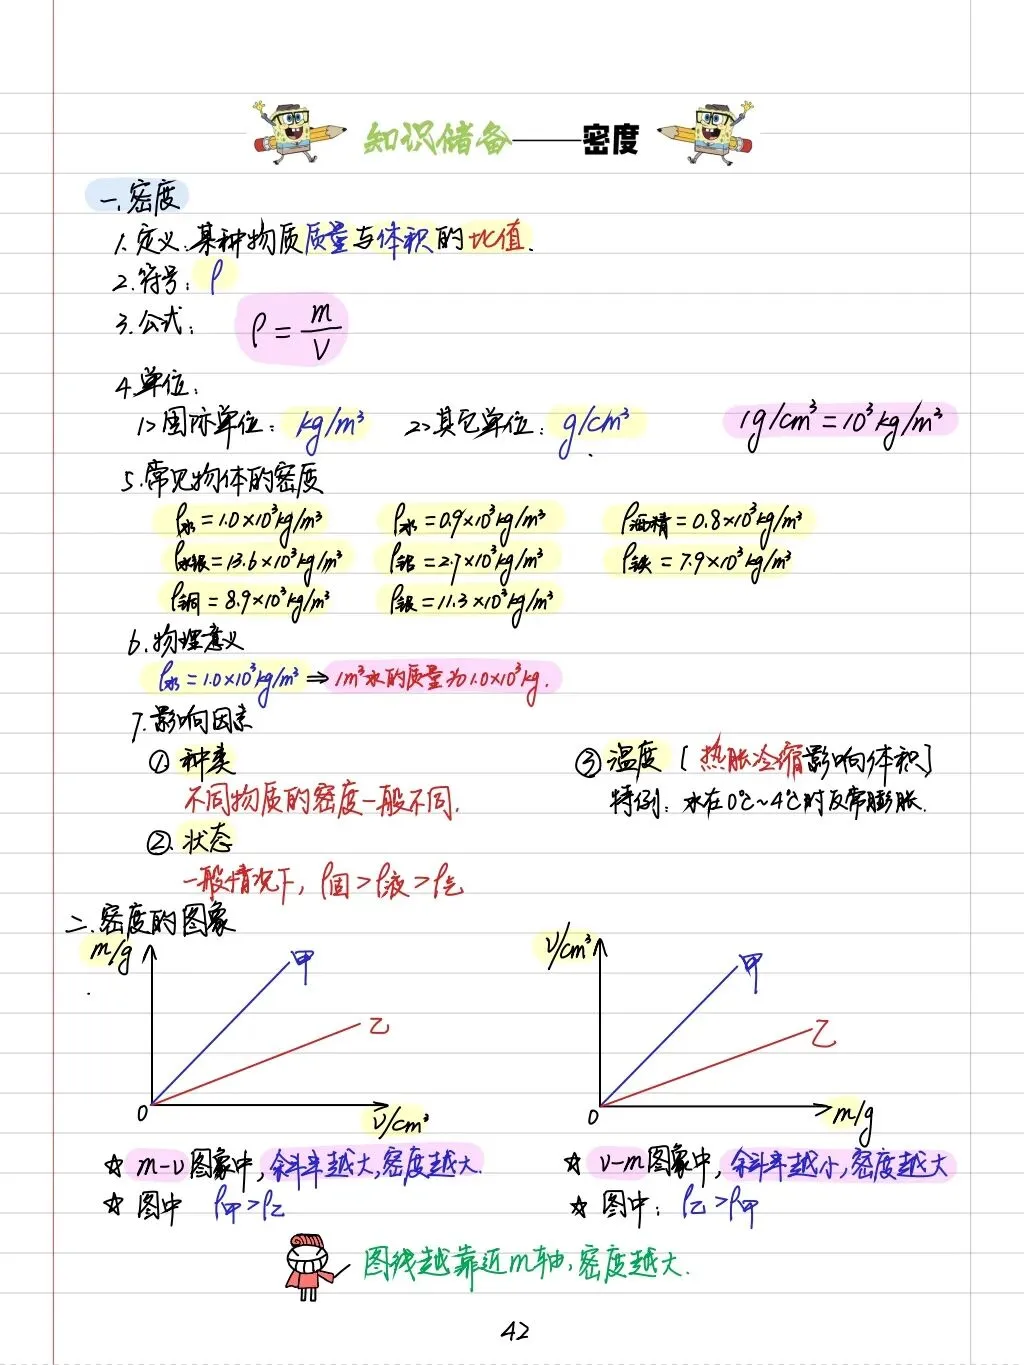 知识储备——密度
一.密度
1.定义:某种物质质量与体积的比值.
2.符号:ρ
3.公式: ρ=m/V
4.单位:
1>国际单位: kg/m³ 2>其它单位: g/cm³ 1g/cm³=10³kg/m³
5.常见物体的密度
ρ水=1.0×10³kg/m³ ρ冰=0.9×10³kg/m³ ρ酒精=0.8×10³kg/m³
ρ水银=13.6×10³kg/m³ ρ铝=2.7×10³kg/m³ ρ铁=7.9×10³kg/m³
ρ铜=8.9×10³kg/m³ =11.3×10³kg/m³
6.物理意义
ρ水=1.0×10³kg/m³⇒1m³水的质量为1.0×10³kg.
7.影响因素
①种类 ③温度[热胀冷缩影响体积]
不同物质的密度一般不同. 特例:水在0℃~4℃时反常膨胀.
②.状态
一般情况下,ρ固>ρ液>ρ气
二.密度的图象
m/g 甲 乙 0 V/cm³
V/cm³ 甲 乙 0 m/g
☆ m-v图象中,斜率越大,密度越大. ☆ v-m图象中,斜率越小,密度越大
☆ 图中 ρ甲>ρ乙 ☆ 图中: ρ乙>ρ甲
图线越靠近m轴,密度越大.
42